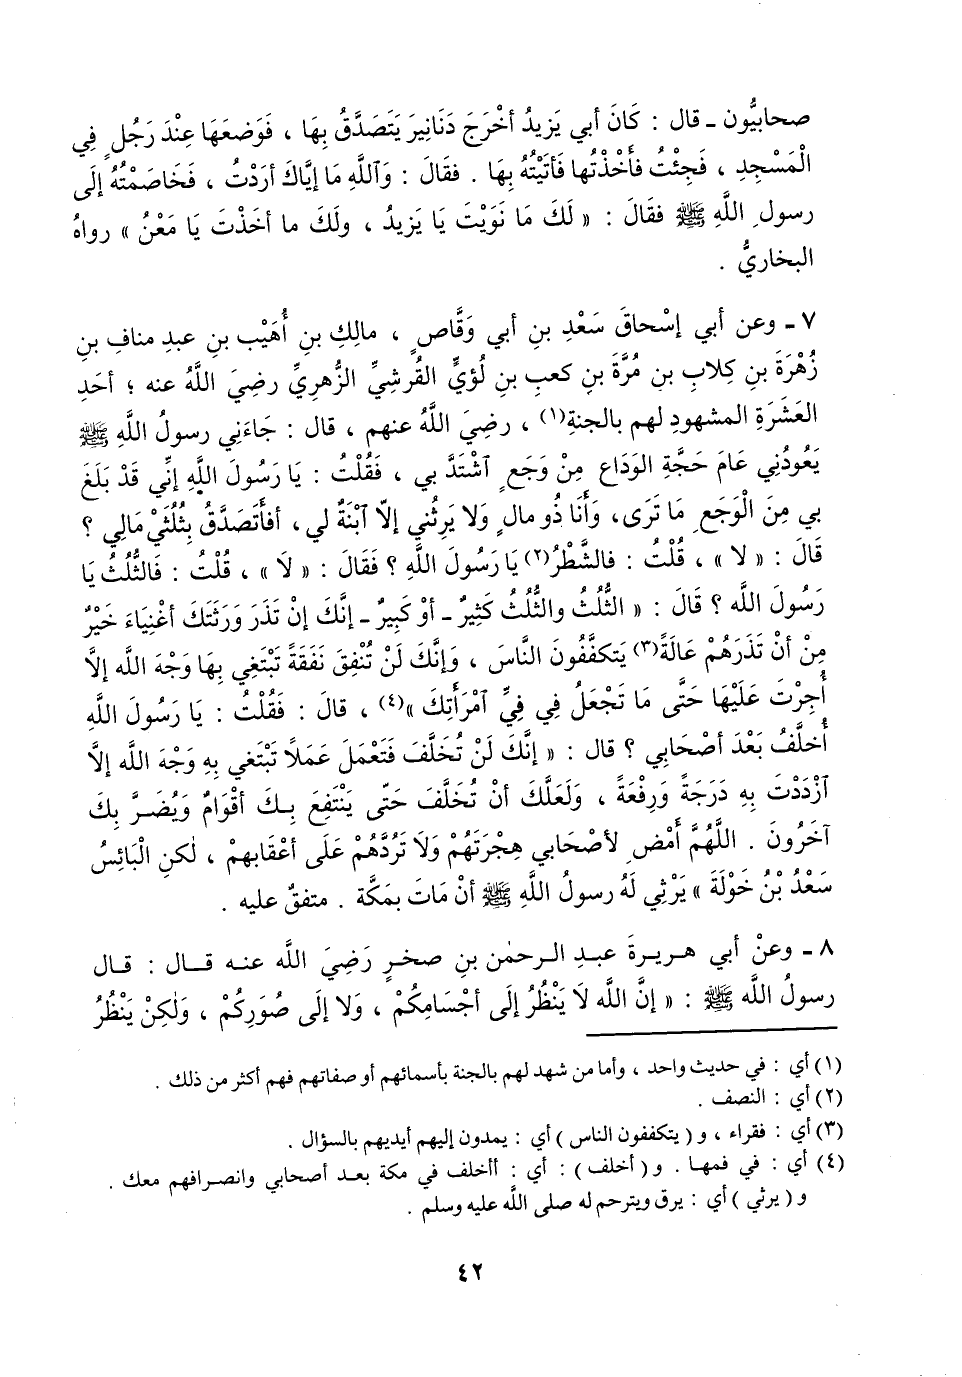 صحابيُّون ـ قال : كَانَ أبي يَزيدُ أخْرَجَ دَنَانِيرَ يَتَصَدَّقُ بِهَا ، فَوَضعَهَا عِنْدَ رَجُلٍ فِي
الْمَسْجِدِ ، فَجِئْتُ فَأَخْذْتُها فَأتَيْتُهُ بِهَا . فقَالَ : وَٱللَّهِ مَا إيَّاكَ أرَدْتُ ، فَخَاصَمْتُهُ إلَى
رسولِ اللَّهِ ﷺ فقَالَ : « لَكَ مَا نَوَيْتَ يَا يَزيدُ ، ولَكَ ما أخَذْتَ يَا مَعْنُ » رواهُ
البخاريُّ .
٧ ـ وعن أبي إسْحاقَ سَعْدِ بنِ أبي وَقَّاصٍ ، مالِكِ بنِ أُهَيْب بنِ عبدِ منافِ بنِ
زُهْرَةَ بنِ كِلابِ بنِ مُرَّةَ بنِ كعبِ بنِ لُؤيٍّ القُرشيِّ الزُّهريِّ رضِيَ اللَّهُ عنه ؛ أحَدِ
العَشَرَةِ المشهودِ لهم بالجنةِ(١) ، رضِيَ اللَّهُ عنهم ، قال : جَاءَنِي رسولُ اللَّهِ ﷺ
يَعُودُنِي عَامَ حَجَّةِ الوَدَاع مِنْ وَجَعٍ ٱشْتَدَّ بي ، فَقُلْتُ : يَا رَسُولَ اللَّهِ إنِّي قَدْ بَلَغَ
بي مِنَ الْوَجَعِ مَا تَرَى، وَأنَا ذُو مالٍ وَلا يَرِثُني إلاّ ٱبْنَةٌ لي، أفأتَصَدَّقُ بِثُلُثَيْ مَالِي ؟
قَالَ : « لا » ، قُلْتُ : فالشَّطْرُ(٢) يَا رَسُولَ اللَّهِ ؟ فَقَالَ : « لَا » ، قُلْتُ : فَالثُّلُثُ يَا
رَسُولَ اللَّه ؟ قَالَ : « الثُّلُثُ والثُّلُثُ كَثِيرٌ ـ أوْ كَبِيرٌ ـ إنَّكَ إنْ تَذَرَ وَرَثَتَكَ أغْنِيَاءَ خَيْرٌ
مِنْ أنْ تَذَرَهُمْ عَالَةً(٣) يَتكفَّفُونَ النَّاسَ ، وَإنَّكَ لَنْ تُنْفِقَ نَفَقَةً تَبْتَغِي بِهَا وَجْهَ اللَّه إلاَّ
أُجِرْتَ عَلَيْهَا حَتَّى مَا تَجْعَلُ فِي فِيِّ ٱمْرَأَتِكَ »(٤) ، قالَ : فَقُلْتُ : يَا رَسُولَ اللَّهِ
أُخلَّفُ بَعْدَ أصْحَابِي ؟ قال : « إنَّكَ لَنْ تُخَلَّفَ فَتَعْمَلَ عَمَلاً تَبْتَغي بِهِ وَجْهَ اللَّه إلاَّ
ٱزْدَدْتَ بِهِ دَرَجَةً وَرِفْعَةً ، وَلَعَلَّكَ أنْ تُخَلَّفَ حَتّى يَنْتَفِعَ بِكَ أقْوَامٌ وَيُضَرَّ بِكَ
آخَرُونَ . اللَّهُمَّ أَمْضِ لأصْحَابي هِجْرَتَهُمْ وَلَا تَرُدَّهُمْ عَلَى أعْقَابهمْ ، لٰكنِ الْبَائِسُ
سَعْدُ بْنُ خَوْلَةَ » يَرْثِي لَهُ رسولُ اللَّهِ ﷺ أنْ مَاتَ بمَكَّة . متفقٌ عليه .
٨ ـ وعنْ أبي هريرةَ عبدِ الرحمٰن بنِ صخرٍ رَضِيَ اللَّه عنه قال : قال
رسولُ اللَّه ﷺ : « إنَّ اللَّه لَا يَنْظُرُ إلَى أجْسَامِكُمْ ، وَلا إلَى صُوَرِكُمْ ، وَلٰكِنْ يَنْظُرُ
(١) أي : في حديث واحد ، وأما من شهد لهم بالجنة بأسمائهم أو صفاتهم فهم أكثر من ذلك .
(٢) أي : النصف .
(٣) أي : فقراء ، و ( يتكففون الناس ) أي : يمدون إليهم أيديهم بالسؤال .
(٤) أي : في فمها . و ( أخلف ) : أي : أأخلف في مكة بعد أصحابي وانصرافهم معك .
و ( يرثي ) أي : يرق ويترحم له صلى اللَّه عليه وسلم .
٤٢